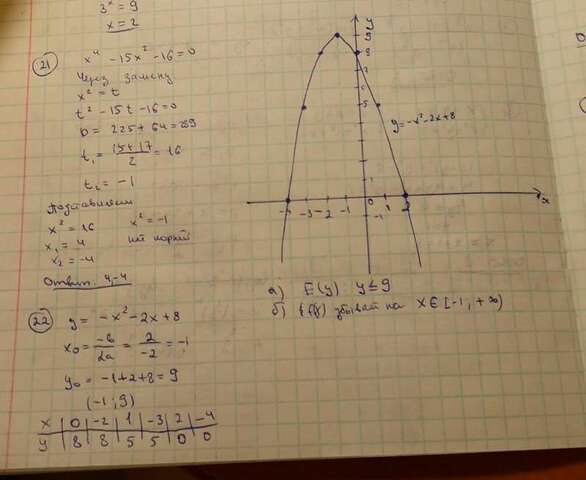 3ˣ = 9
x = 2
21) x⁴ - 15x² - 16 = 0
Через замену
x² = t
t² - 15t - 16 = 0
D = 225 + 64 = 289
t₁ = (15 + 17)/2 = 16
t₂ = -1
Подставляем
x² = 16 x² = -1
x₁ = 4 нет корней
x₂ = -4
Ответ. 4, -4
22) y = -x² - 2x + 8
x₀ = -b/2a = 2/-2 = -1
y₀ = -1 + 2 + 8 = 9
(-1; 9)
x | 0 | -2 | 1 | -3 | 2 | -4
y | 8 | 8 | 5 | 5 | 0 | 0
y
9
8
7
5
y = -x² - 2x + 8
-4 -3 -2 -1 0 1 2 x
-1
а) E(y): y ≤ 9
б) f(x) убывает на x ∈ [-1, +∞)